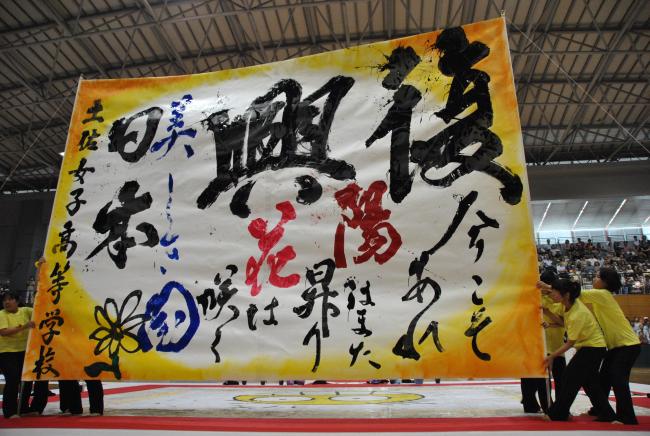 復興
今こそ
あれ
陽はまた
昇り
花は
咲く
美しい国
日本
土佐女子高等学校